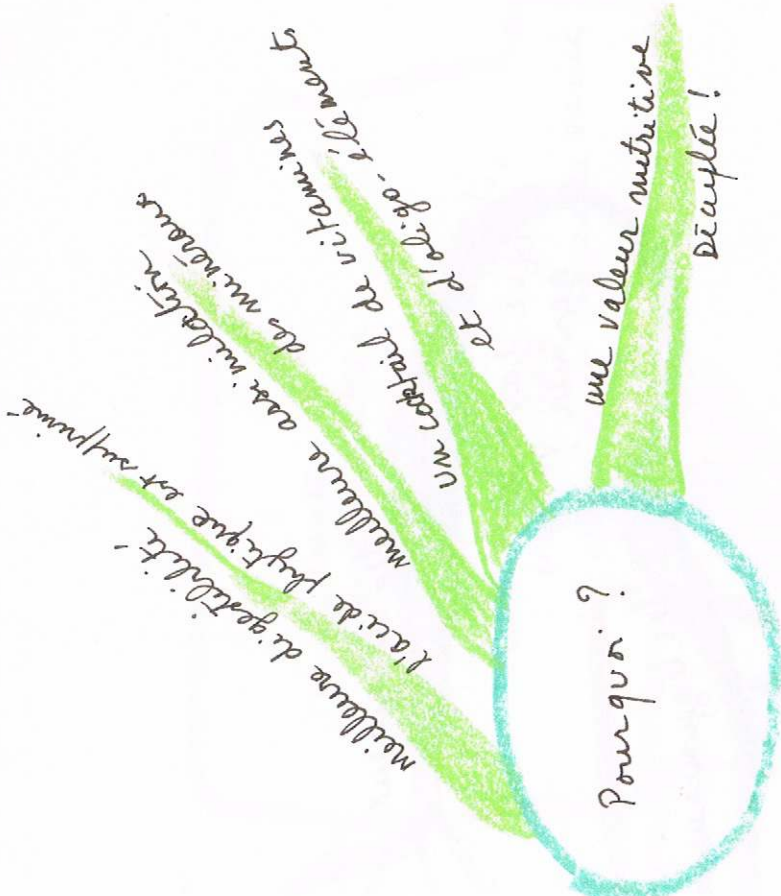 Pourquoi ?
meilleure digestibilité
l'acide phytique est supprimé
meilleure assimilation
des minéraux
un cocktail de vitamines
et d'oligo-élément
une valeur nutritive
Décuplée !